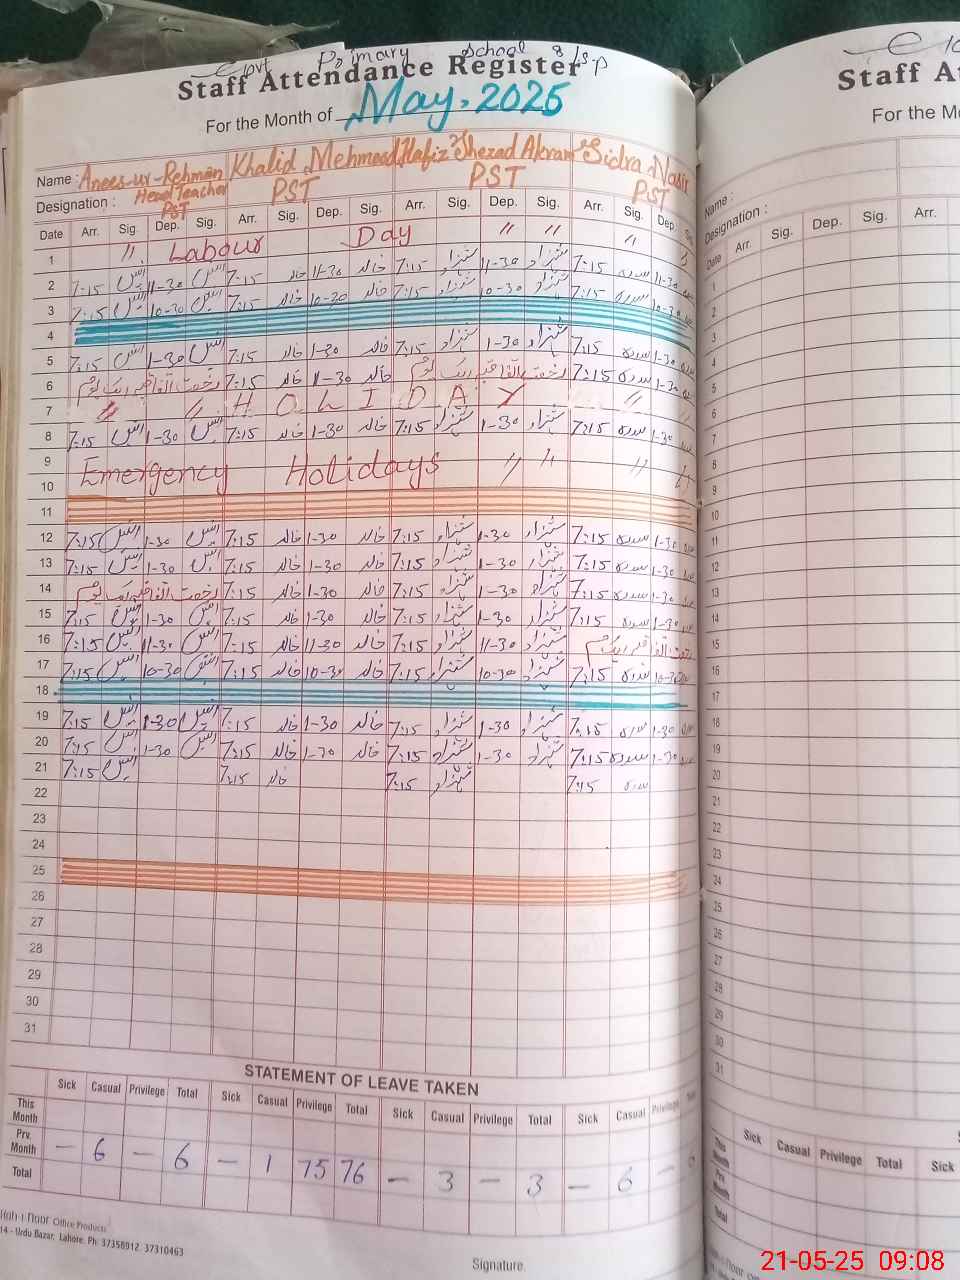 Govt Primary School 8/SP
Staff Attendance Register
For the Month of May, 2025
Name : Anees-ur-Rehman Khalid Mehmood Hafiz Shezad Akram Sidra Nasir
Designation : Head Teacher PST PST PST PST
Date Arr. Sig. Dep. Sig. Arr. Sig. Dep. Sig. Arr. Sig. Dep. Sig. Arr. Sig. Dep.
1 〃 Labour Day 〃 〃 〃
2 7:15 11-30 7:15 خالد 11-30 خالد 7:15 شہزاد 11-30 شہزاد 7:15 سدرہ 11-30
3 7:15 10-30 7:15 خالد 10-30 خالد 7:15 شہزاد 10-30 شہزاد 7:15 سدرہ 10-30
4
5 7:15 1-30 7:15 خالد 1-30 خالد 7:15 شہزاد 1-30 شہزاد 7:15 سدرہ 1-30
6 رخصت اتفاقیہ ایک یوم 7:15 خالد 11-30 خالد رخصت اتفاقیہ ایک یوم 7:15 سدرہ 1-30
7 〃 〃 HOLIDAY 〃
8 7:15 1-30 7:15 خالد 1-30 خالد 7:15 شہزاد 1-30 شہزاد 7:15 سدرہ 1-30
9
10 Emergency Holidays 〃 〃 〃
11
12 7:15 1-30 7:15 خالد 1-30 خالد 7:15 شہزاد 1-30 شہزاد 7:15 سدرہ 1-30
13 7:15 1-30 7:15 خالد 1-30 خالد 7:15 شہزاد 1-30 شہزاد 7:15 سدرہ 1-30
14 رخصت اتفاقیہ ایک یوم 7:15 خالد 1-30 خالد 7:15 شہزاد 1-30 شہزاد 7:15 سدرہ 1-30
15 7:15 1-30 7:15 خالد 1-30 خالد 7:15 شہزاد 1-30 شہزاد 7:15 سدرہ 1-30
16 7:15 11-30 7:15 خالد 11-30 خالد 7:15 شہزاد 11-30 شہزاد رخصت اتفاقیہ ایک یوم
17 7:15 10-30 7:15 خالد 10-30 خالد 7:15 شہزاد 10-30 شہزاد 7:15 سدرہ 10-30
18
19 7:15 1-30 7:15 خالد 1-30 خالد 7:15 شہزاد 1-30 شہزاد 7:15 سدرہ 1-30
20 7:15 1-30 7:15 خالد 1-30 خالد 7:15 شہزاد 1-30 شہزاد 7:15 سدرہ 1-30
21 7:15 7:15 خالد 7:15 شہزاد 7:15 سدرہ
22
23
24
25
26
27
28
29
30
31
STATEMENT OF LEAVE TAKEN
Sick Casual Privilege Total Sick Casual Privilege Total Sick Casual Privilege Total Sick Casual Privilege
This Month
Prv. Month — 6 — 6 — 1 75 76 — 3 — 3 — 6 —
Total
Office Products
14 - Urdu Bazar, Lahore. Ph: 37358912, 37310463
Signature.
Staff
For the
Name :
Designation :
Date Arr. Sig. Dep. Sig. Arr.
1
2
3
4
5
6
7
8
9
10
11
12
13
14
15
16
17
18
19
20
21
22
23
24
25
26
27
28
29
30
31
Sick Casual Privilege Total Sick
This Month
Prv. Month
Total
21-05-25 09:08